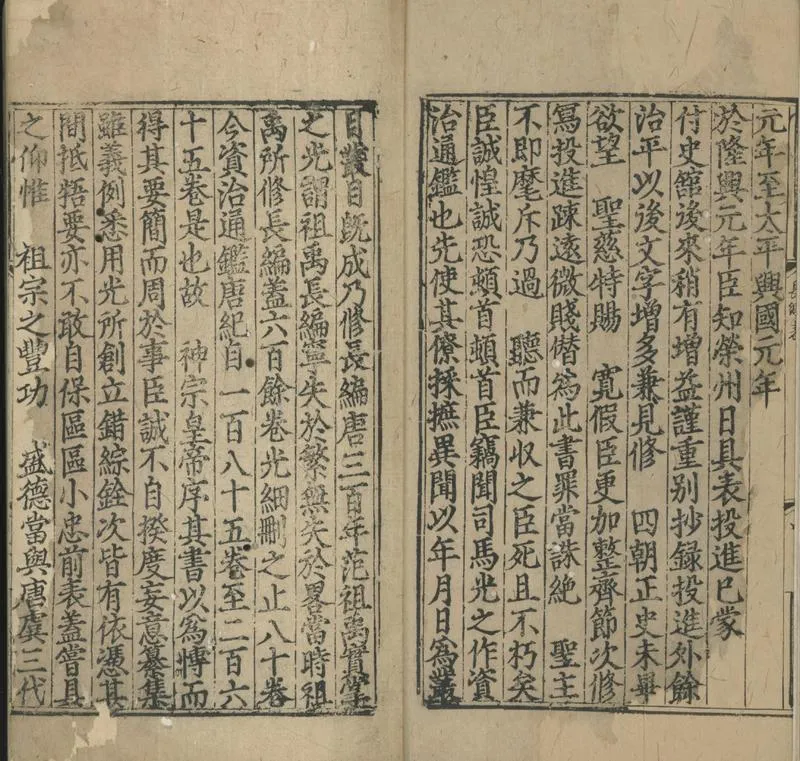 元年至太平興國元年
於隆興元年臣知榮州日具表投進已蒙
付史館後來稍有增益謹重別抄錄投進外餘
治平以後文字增多兼見修 四朝正史未畢
欲望 聖慈特賜 寬假臣更加整齊節次修
寫投進踈遠微賤僣爲此書罪當誅絶 聖主
不即麾斥乃過 聽而兼收之臣死且不朽矣
臣誠惶誠恐頓首頓首臣竊聞司馬光之作資
治通鑑也先使其僚採摭異聞以年月日爲叢
目叢目既成乃修長編唐三百年范祖禹實掌
之光謂祖禹長編寧失於繁無失於畧當時祖
禹所修長編蓋六百餘卷光細刪之止八十卷
今資治通鑑唐紀自一百八十五卷至二百六
十五卷是也故 神宗皇帝序其書以爲愽而
得其要簡而周於事臣誠不自揆度妄意纂集
雖義例悉用光所創立錯綜銓次皆有依憑其
間抵牾要亦不敢自保區區小忠前表蓋嘗具
之仰惟 祖宗之豐功 盛德當與唐虞三代